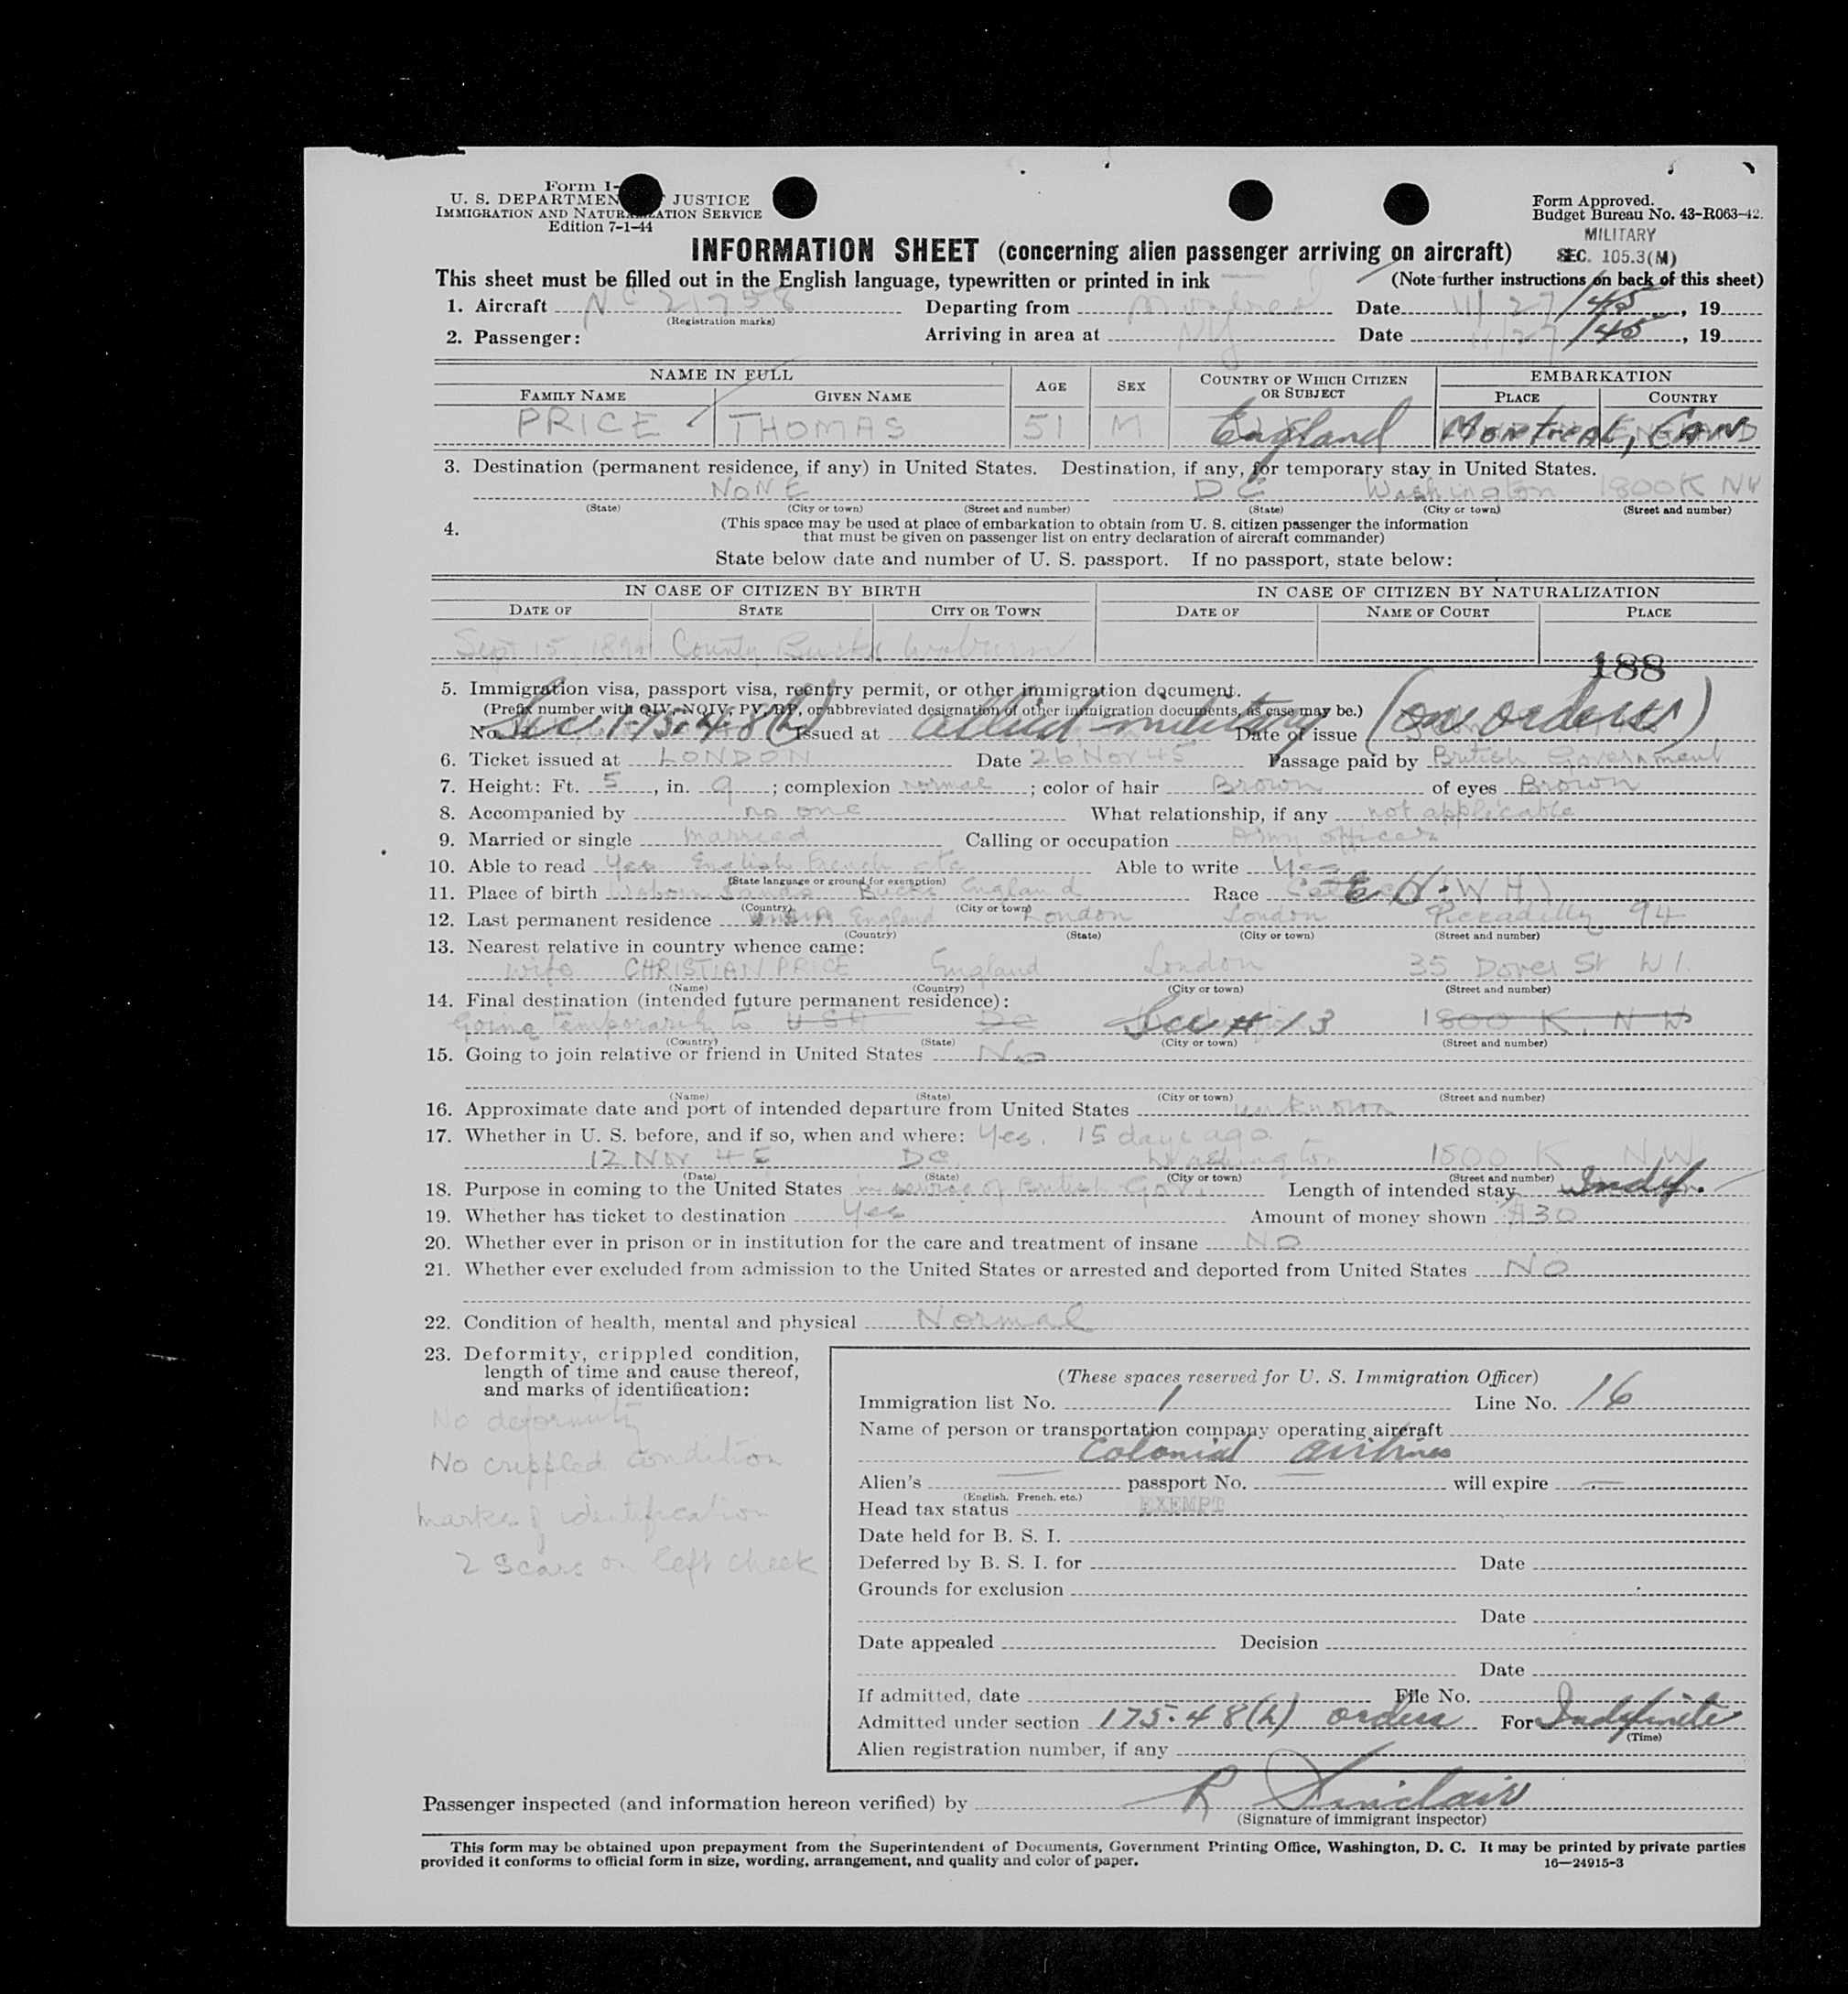 Form I-
U. S. DEPARTMEN JUSTICE
IMMIGRATION AND NATURALIZATION SERVICE
Edition 7-1-44
Form Approved.
Budget Bureau No. 43-R063-42.
MILITARY
SEC. 105.3(M)
INFORMATION SHEET (concerning alien passenger arriving on aircraft)
This sheet must be filled out in the English language, typewritten or printed in ink (Note further instructions on back of this sheet)
1. Aircraft NC 21758 Departing from Montreal Date 11/27/45, 19
(Registration marks)
2. Passenger: Arriving in area at NY Date 11/27/45, 19
NAME IN FULL AGE SEX COUNTRY OF WHICH CITIZEN OR SUBJECT EMBARKATION
FAMILY NAME GIVEN NAME PLACE COUNTRY
PRICE THOMAS 51 M England Montreal, CAN
3. Destination (permanent residence, if any) in United States. Destination, if any, for temporary stay in United States.
NONE DC Washington 1800 K NW
(State) (City or town) (Street and number) (State) (City or town) (Street and number)
4. (This space may be used at place of embarkation to obtain from U. S. citizen passenger the information
that must be given on passenger list on entry declaration of aircraft commander)
State below date and number of U. S. passport. If no passport, state below:
IN CASE OF CITIZEN BY BIRTH IN CASE OF CITIZEN BY NATURALIZATION
DATE OF STATE CITY OR TOWN DATE OF NAME OF COURT PLACE
Sept 15, 1894 County Bucks Woburn
188
5. Immigration visa, passport visa, reentry permit, or other immigration document.
(Prefix number with QIV, NQIV, PV, RP, or abbreviated designation of other immigration documents, as case may be.)
No. Sec 175.48(h) Issued at allied military Date of issue (on orders)
6. Ticket issued at LONDON Date 26 Nov 45 Passage paid by British Government
7. Height: Ft. 5, in. 9; complexion normal; color of hair Brown of eyes Brown
8. Accompanied by no one What relationship, if any not applicable
9. Married or single married Calling or occupation Army officer
10. Able to read Yes English French etc Able to write Yes
(State language or ground for exemption)
11. Place of birth Woburn Sands Bucks England Race (WH)
(Country) (City or town)
12. Last permanent residence England London London Piccadilly 94
(Country) (State) (City or town) (Street and number)
13. Nearest relative in country whence came:
wife CHRISTIAN PRICE England London 35 Dover St W1.
(Name) (Country) (City or town) (Street and number)
14. Final destination (intended future permanent residence):
Going temporarily to USA DC See # 13 1800 K. N W
(Country) (State) (City or town) (Street and number)
15. Going to join relative or friend in United States No
(Name) (State) (City or town) (Street and number)
16. Approximate date and port of intended departure from United States unknown
17. Whether in U. S. before, and if so, when and where: Yes. 15 days ago
12 Nov 45 DC Washington 1800 K NW
(Date) (State) (City or town) (Street and number)
18. Purpose in coming to the United States in service of British Gov. Length of intended stay Indf.
19. Whether has ticket to destination Yes Amount of money shown $30
20. Whether ever in prison or in institution for the care and treatment of insane NO
21. Whether ever excluded from admission to the United States or arrested and deported from United States NO
22. Condition of health, mental and physical Normal
23. Deformity, crippled condition,
length of time and cause thereof,
and marks of identification:
No deformity
No crippled condition
marks of identification
2 scars on left cheek
(These spaces reserved for U. S. Immigration Officer)
Immigration list No. 1 Line No. 16
Name of person or transportation company operating aircraft
Colonial airlines
Alien's — passport No. — will expire —
(English, French, etc.)
Head tax status EXEMPT
Date held for B. S. I.
Deferred by B. S. I. for Date
Grounds for exclusion
Date
Date appealed Decision
Date
If admitted, date File No.
Admitted under section 175.48(h) orders For Indefinite
(Time)
Alien registration number, if any
Passenger inspected (and information hereon verified) by R Sinclair
(Signature of immigrant inspector)
This form may be obtained upon prepayment from the Superintendent of Documents, Government Printing Office, Washington, D. C. It may be printed by private parties
provided it conforms to official form in size, wording, arrangement, and quality and color of paper. 16—24915-3